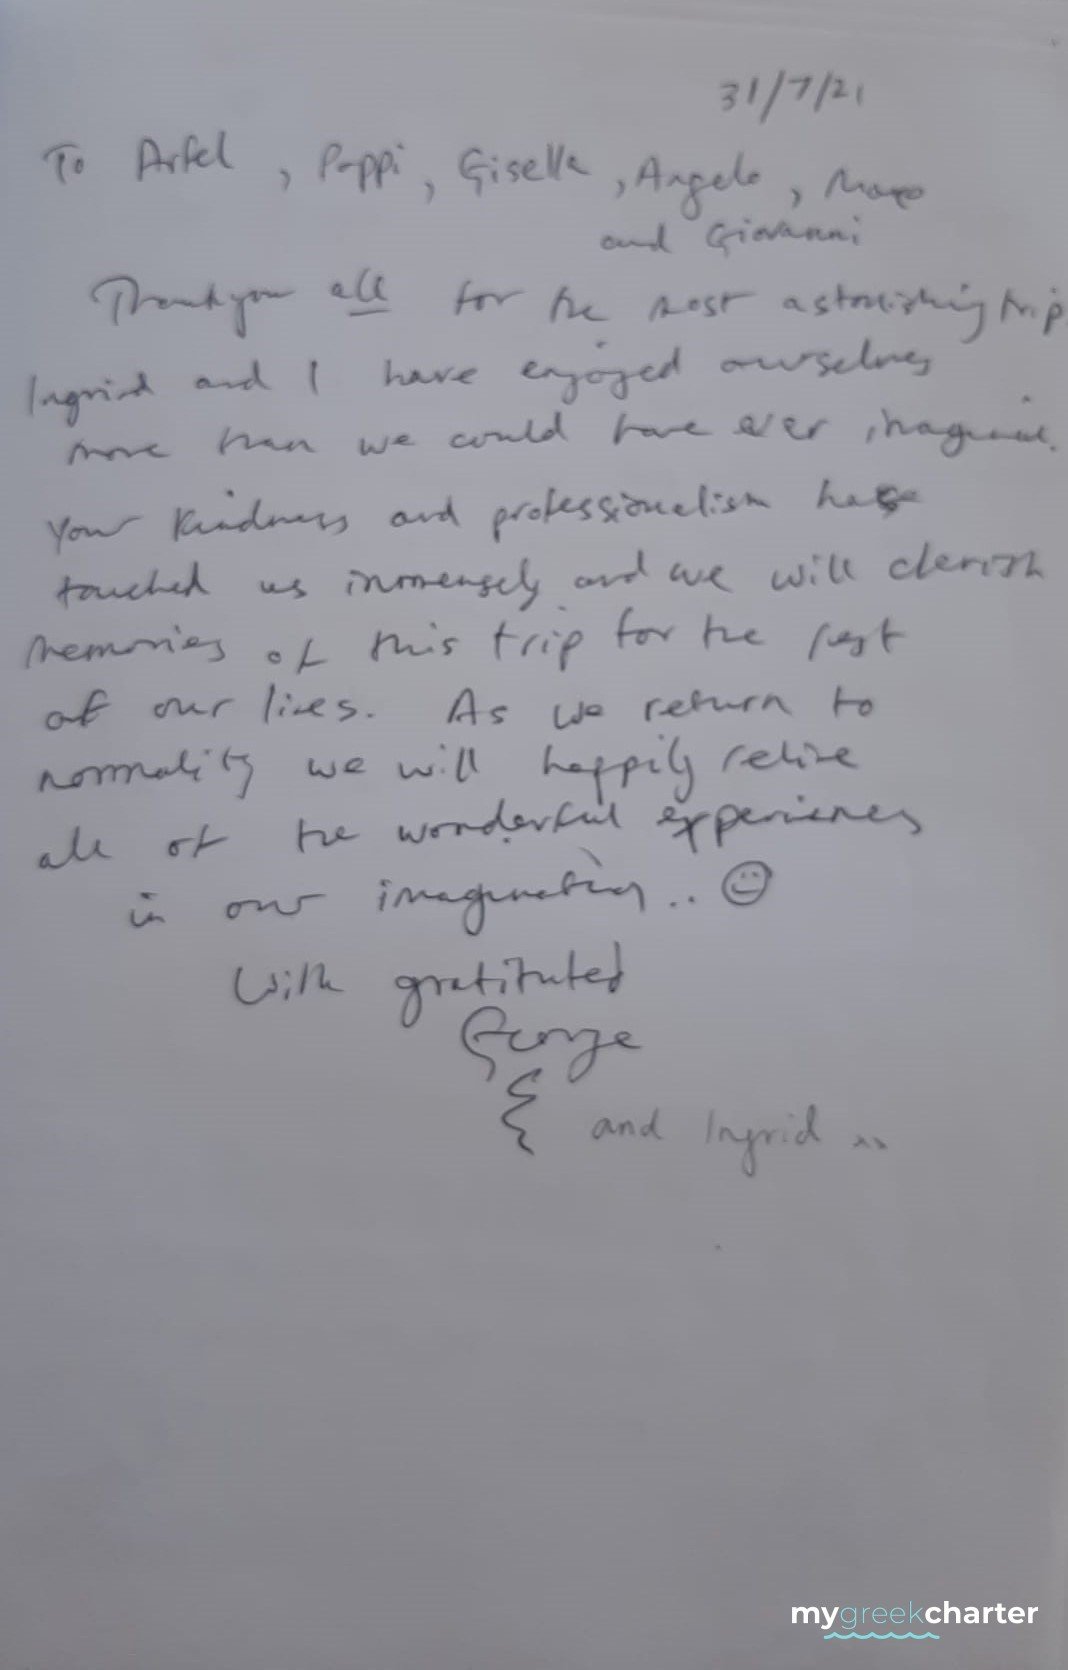 31/7/21
To Arfel, Poppi, Giselle, Angelo,
and Giovanni
Thankyou all for the most astonishing trip
Ingrid and I have enjoyed ourselves
more than we could have ever imagined.
Your kindness and professionalism have
touched us immensely and we will cherish
memories of this trip for the rest
of our lives. As we return to
normality we will happily relive
all of the wonderful experiences
in our imagination.. ☺
With gratituted
George
and Ingrid ..
mygreekcharter